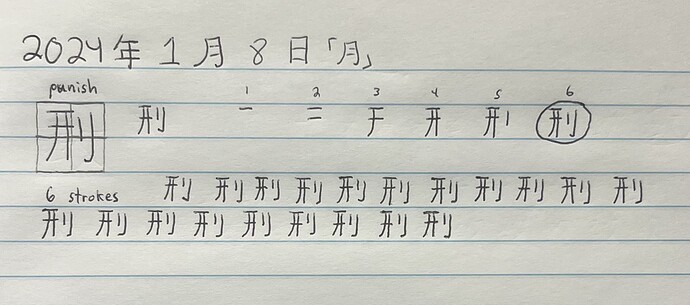 2024年1月8日「月」
punish 1 2 3 4 5 6
刑 刑 一 二 于 开 开丨 刑
6 strokes 刑 刑 刑 刑 刑 刑 刑 刑 刑 刑 刑
刑 刑 刑 刑 刑 刑 刑 刑 刑